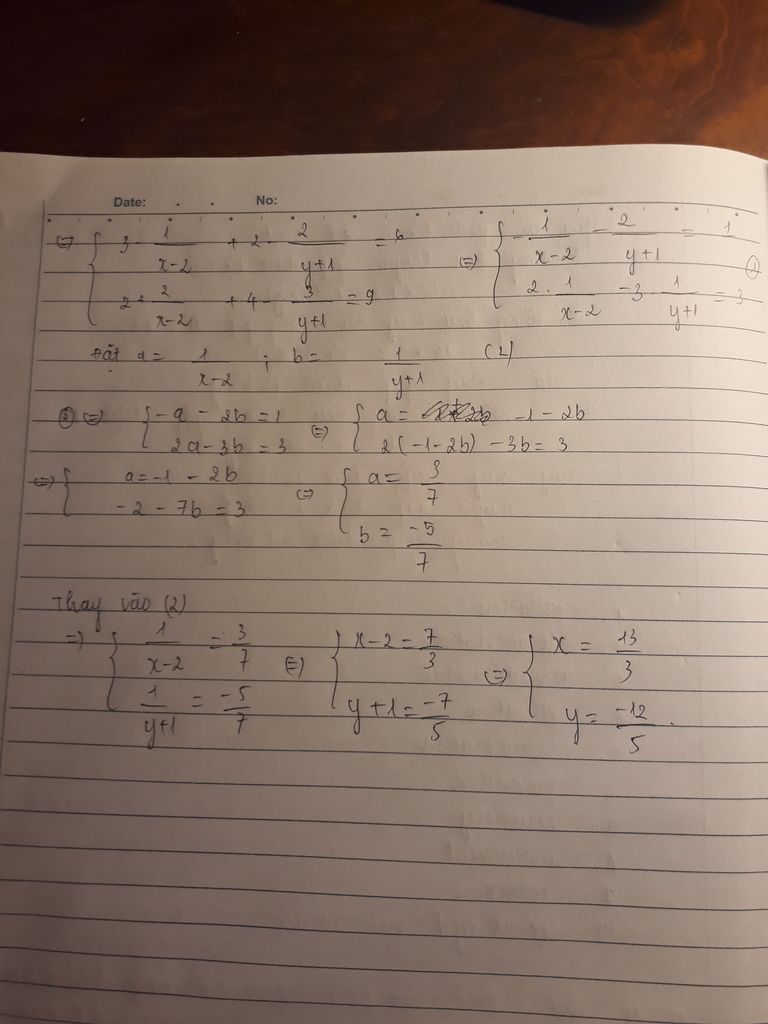 Date: . . No:
<=> { 3 - 1/(x-2) + 2 - 2/(y+1) = 6 ; 2 + 2/(x-2) + 4 - 3/(y+1) = 9 <=> { - 1/(x-2) - 2/(y+1) = 1 ; 2 . 1/(x-2) - 3 . 1/(y+1) = 3 (1)
Đặt a = 1/(x-2) ; b = 1/(y+1) (2)
<=> { -a - 2b = 1 ; 2a - 3b = 3 <=> { a = -1 - 2b ; 2(-1-2b) - 3b = 3
<=> { a = -1 - 2b ; -2 - 7b = 3 <=> { a = 3/7 ; b = -5/7
Thay vào (2)
=> { 1/(x-2) = 3/7 ; 1/(y+1) = -5/7 <=> { x-2 = 7/3 ; y+1 = -7/5 <=> { x = 13/3 ; y = -12/5 .